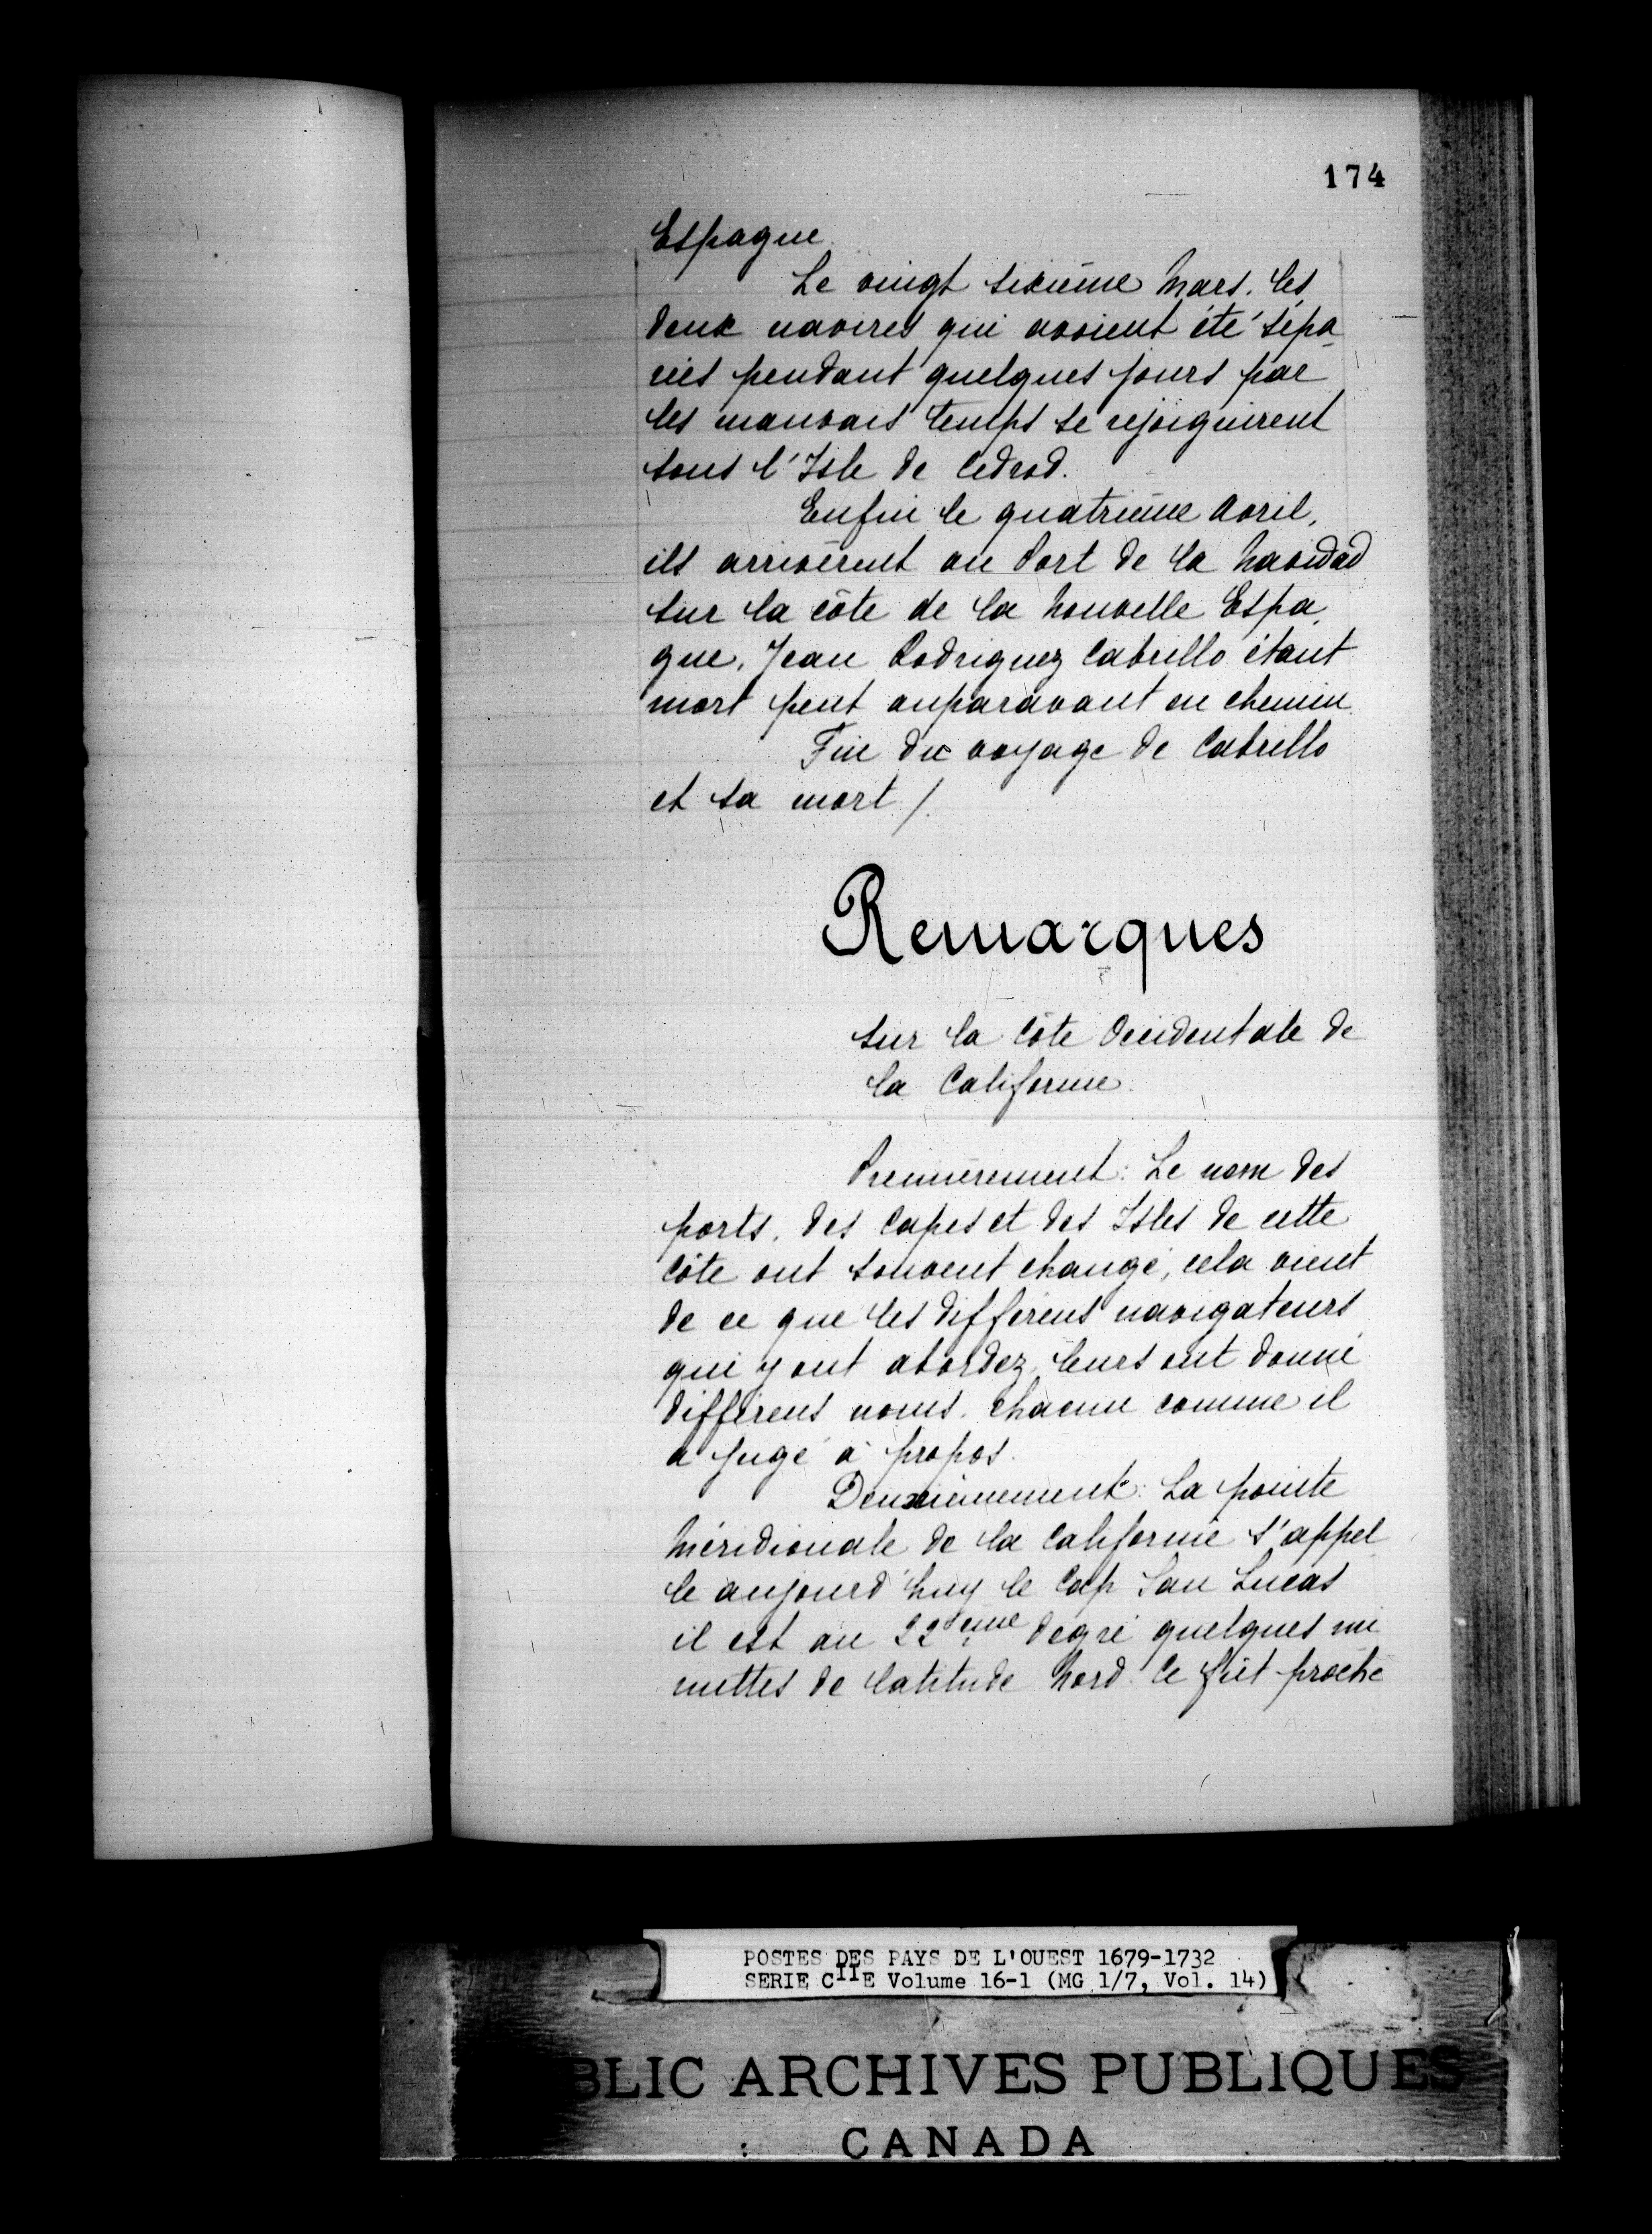 174
Espagne.
Le vingt sixième Mars. les
deux navires qui avoient été sépa
rés pendant quelques jours par
les mauvais temps se rejoignirent
sous l'Isle de Cedrod.
Enfin le quatrième Avril,
ils arrivèrent au Port de la Navidad
sur la côte de la Nouvelle Espa
gne. Jean Rodriguez Cabrillo étant
mort peut auparavant en chemin
Fin du voyage de Cabrillo
et sa mort /.
Remarques
sur la Côte Occidentale de
la Californie.
Premièrement: Le nom des
ports, des Capes et des Isles de cette
Côte ont souvent changé, cela vient
de ce que les différens navigateurs
qui y ont abordez, leurs ont donné
différens noms. Chacun comme il
a jugé à propos.
Deuxièmement: La pointe
Méridionale de la Californie s'appel
le aujourd'huy le Cap San Lucas
il est au 22ème degré quelques mi
nuttes de latitude Nord. Ce fût proche
POSTES DES PAYS DE L'OUEST 1679-1732
SERIE CIIE Volume 16-1 (MG 1/7, Vol. 14)
BLIC ARCHIVES PUBLIQUES
CANADA